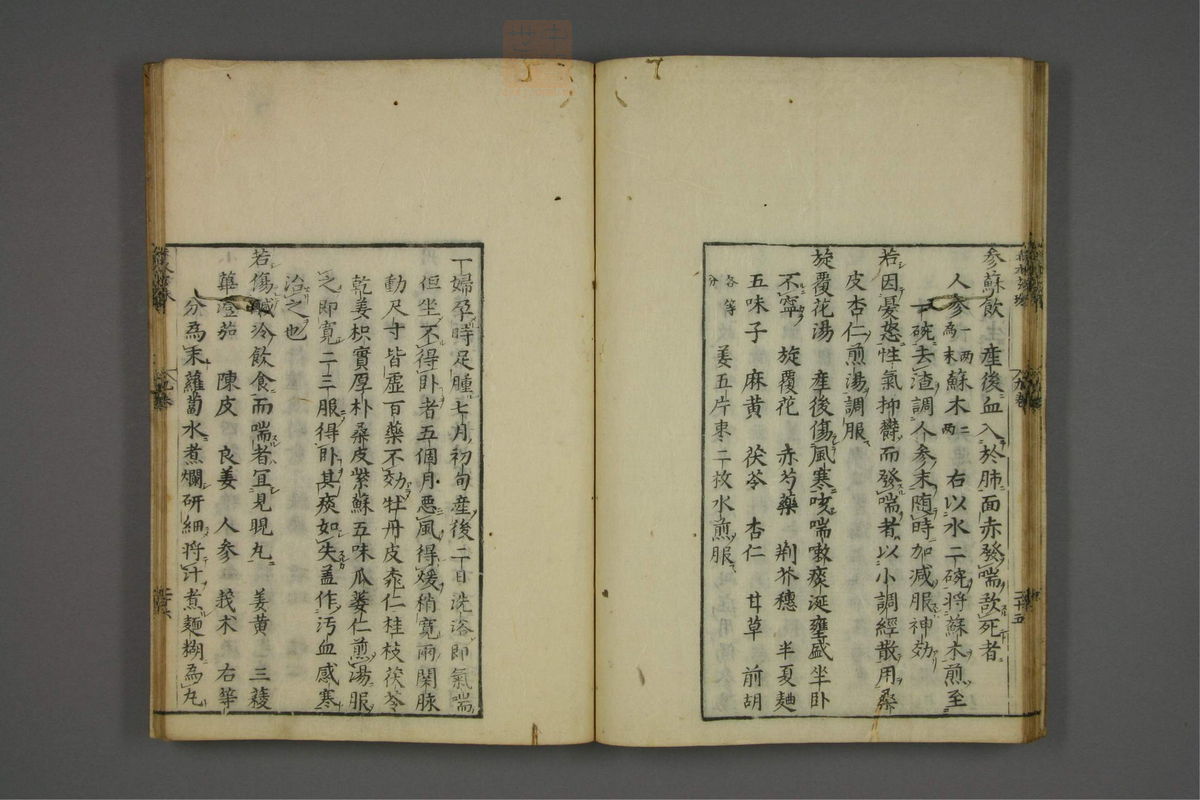 參蘇飲　產後血入於肺面赤發喘欲死者
人參一兩為末蘇木二兩　右以水二碗將蘇木煎至
一碗去渣調人參末隨時加減服神効
若因憂怒性氣抑欝而發喘者以小調經散用桑
皮杏仁煎湯調服
旋覆花湯　產後傷風寒咳喘嗽痰涎壅盛坐卧
不寧　旋覆花　赤芍藥　荆芥穗　半夏麯
五味子　麻黄　茯苓　杏仁　甘草　前胡
各等分　姜五片棗二枚水煎服
丁婦孕時足腫七月初旬產後二日洗浴即氣喘
但坐不得卧者五個月惡風得煖稍寛兩関脉
動尺寸皆虛百藥不効牡丹皮桃仁桂枝茯苓
乾姜枳實厚朴桑皮紫蘇五味瓜蔞仁煎湯服
之即寛二三服得卧其痰如失盖作污血感寒
治之也
若傷鹹冷飲食而喘者宜見睍丸　姜黄　三稜
蓽澄茄　陳皮　良姜　人參　莪朮　右等
分為末蘿蔔水煮爛研細將汁煮麵糊為丸